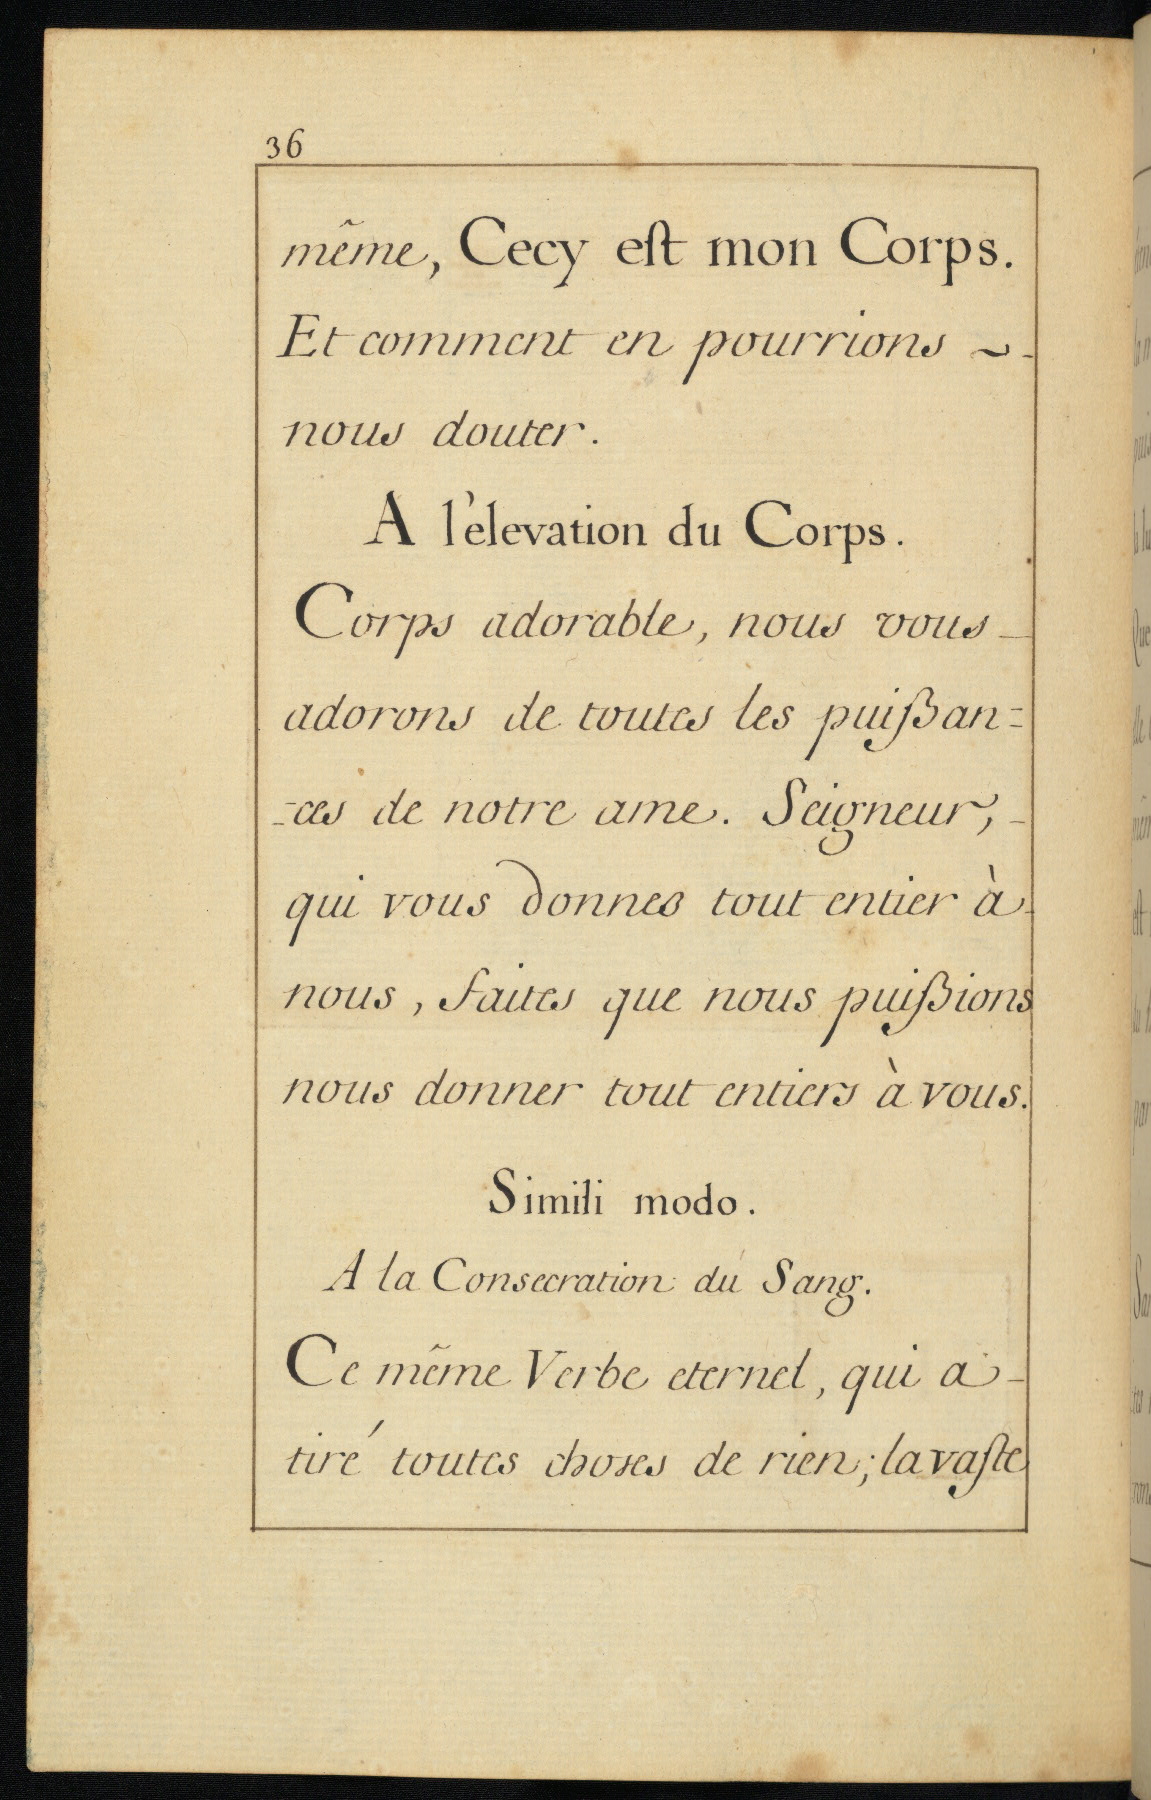 36
même, Cecy est mon Corps.
Et comment en pourrions ~-
nous douter.
A l'elevation du Corps.
Corps adorable, nous vous-
adorons de toutes les puißan=
=ces de notre ame. Seigneur,-
qui vous donnes tout entier à
nous, faites que nous puißions
nous donner tout entiers à vous.
Simili modo.
A la Consecration du Sang.
Ce même Verbe eternel, qui a-
tiré toutes choses de rien; la vaste